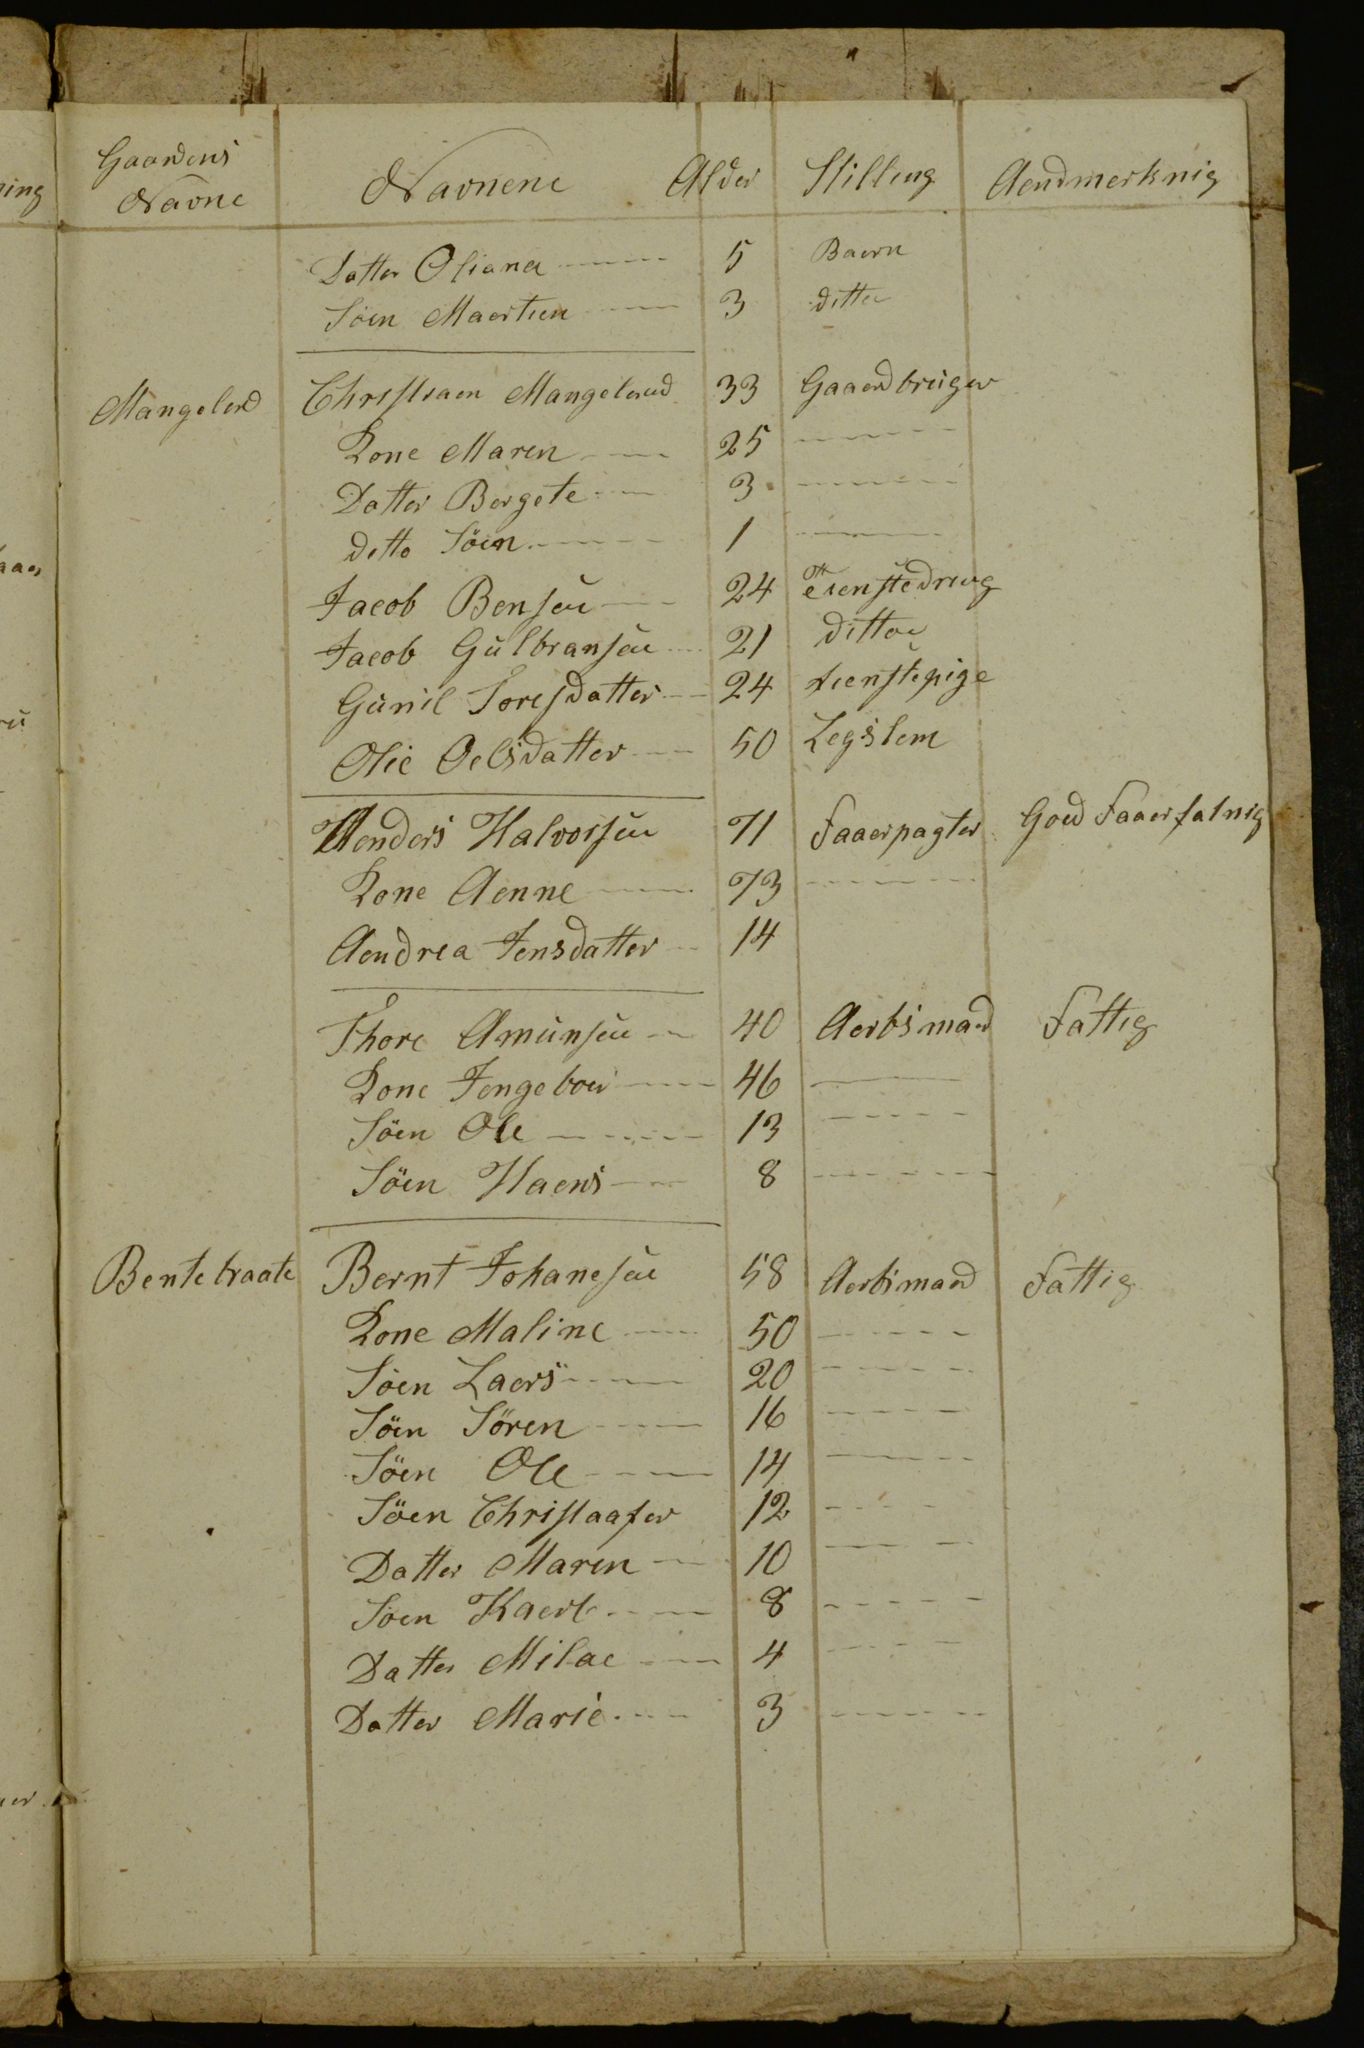 Gaardens Navne Navnene Alder Stilling Aendmerknig
Datter Oliana 5 Baern
Söen Maerten 3 ditto
Mangelerd Christiaen Mangelerud 33 Gaaerdbruger
Kone Maren 25
Datter Bergete 3
ditto Söen 1
Jacob Bensen 24 Tienstedreng
Jacob Gulbransen 21 ditto
Gunil Toresdatter 24 tienstepige
Olie Oelsdatter 50 Legslem
Aenders Halvorsen 71 Faaerpagter Goed Faaerfatnig
Kone Aenne 73
Aendrea Jensdatter 14
Thore Amunsen 40 Aerbsmand Fattig
Kone Jengeboer 46
Söen Ole 13
Söen Haens 8
Bentebraate Bernt Johanesen 58 Aerbsmand Fattig
Kone Maline 50
Söen Laers 20
Söen Sören 16
Söen Ole 14
Söen Christaafer 12
Datter Maren 10
Söen Kaerl 8
Datter Milae 4
Datter Marie 3